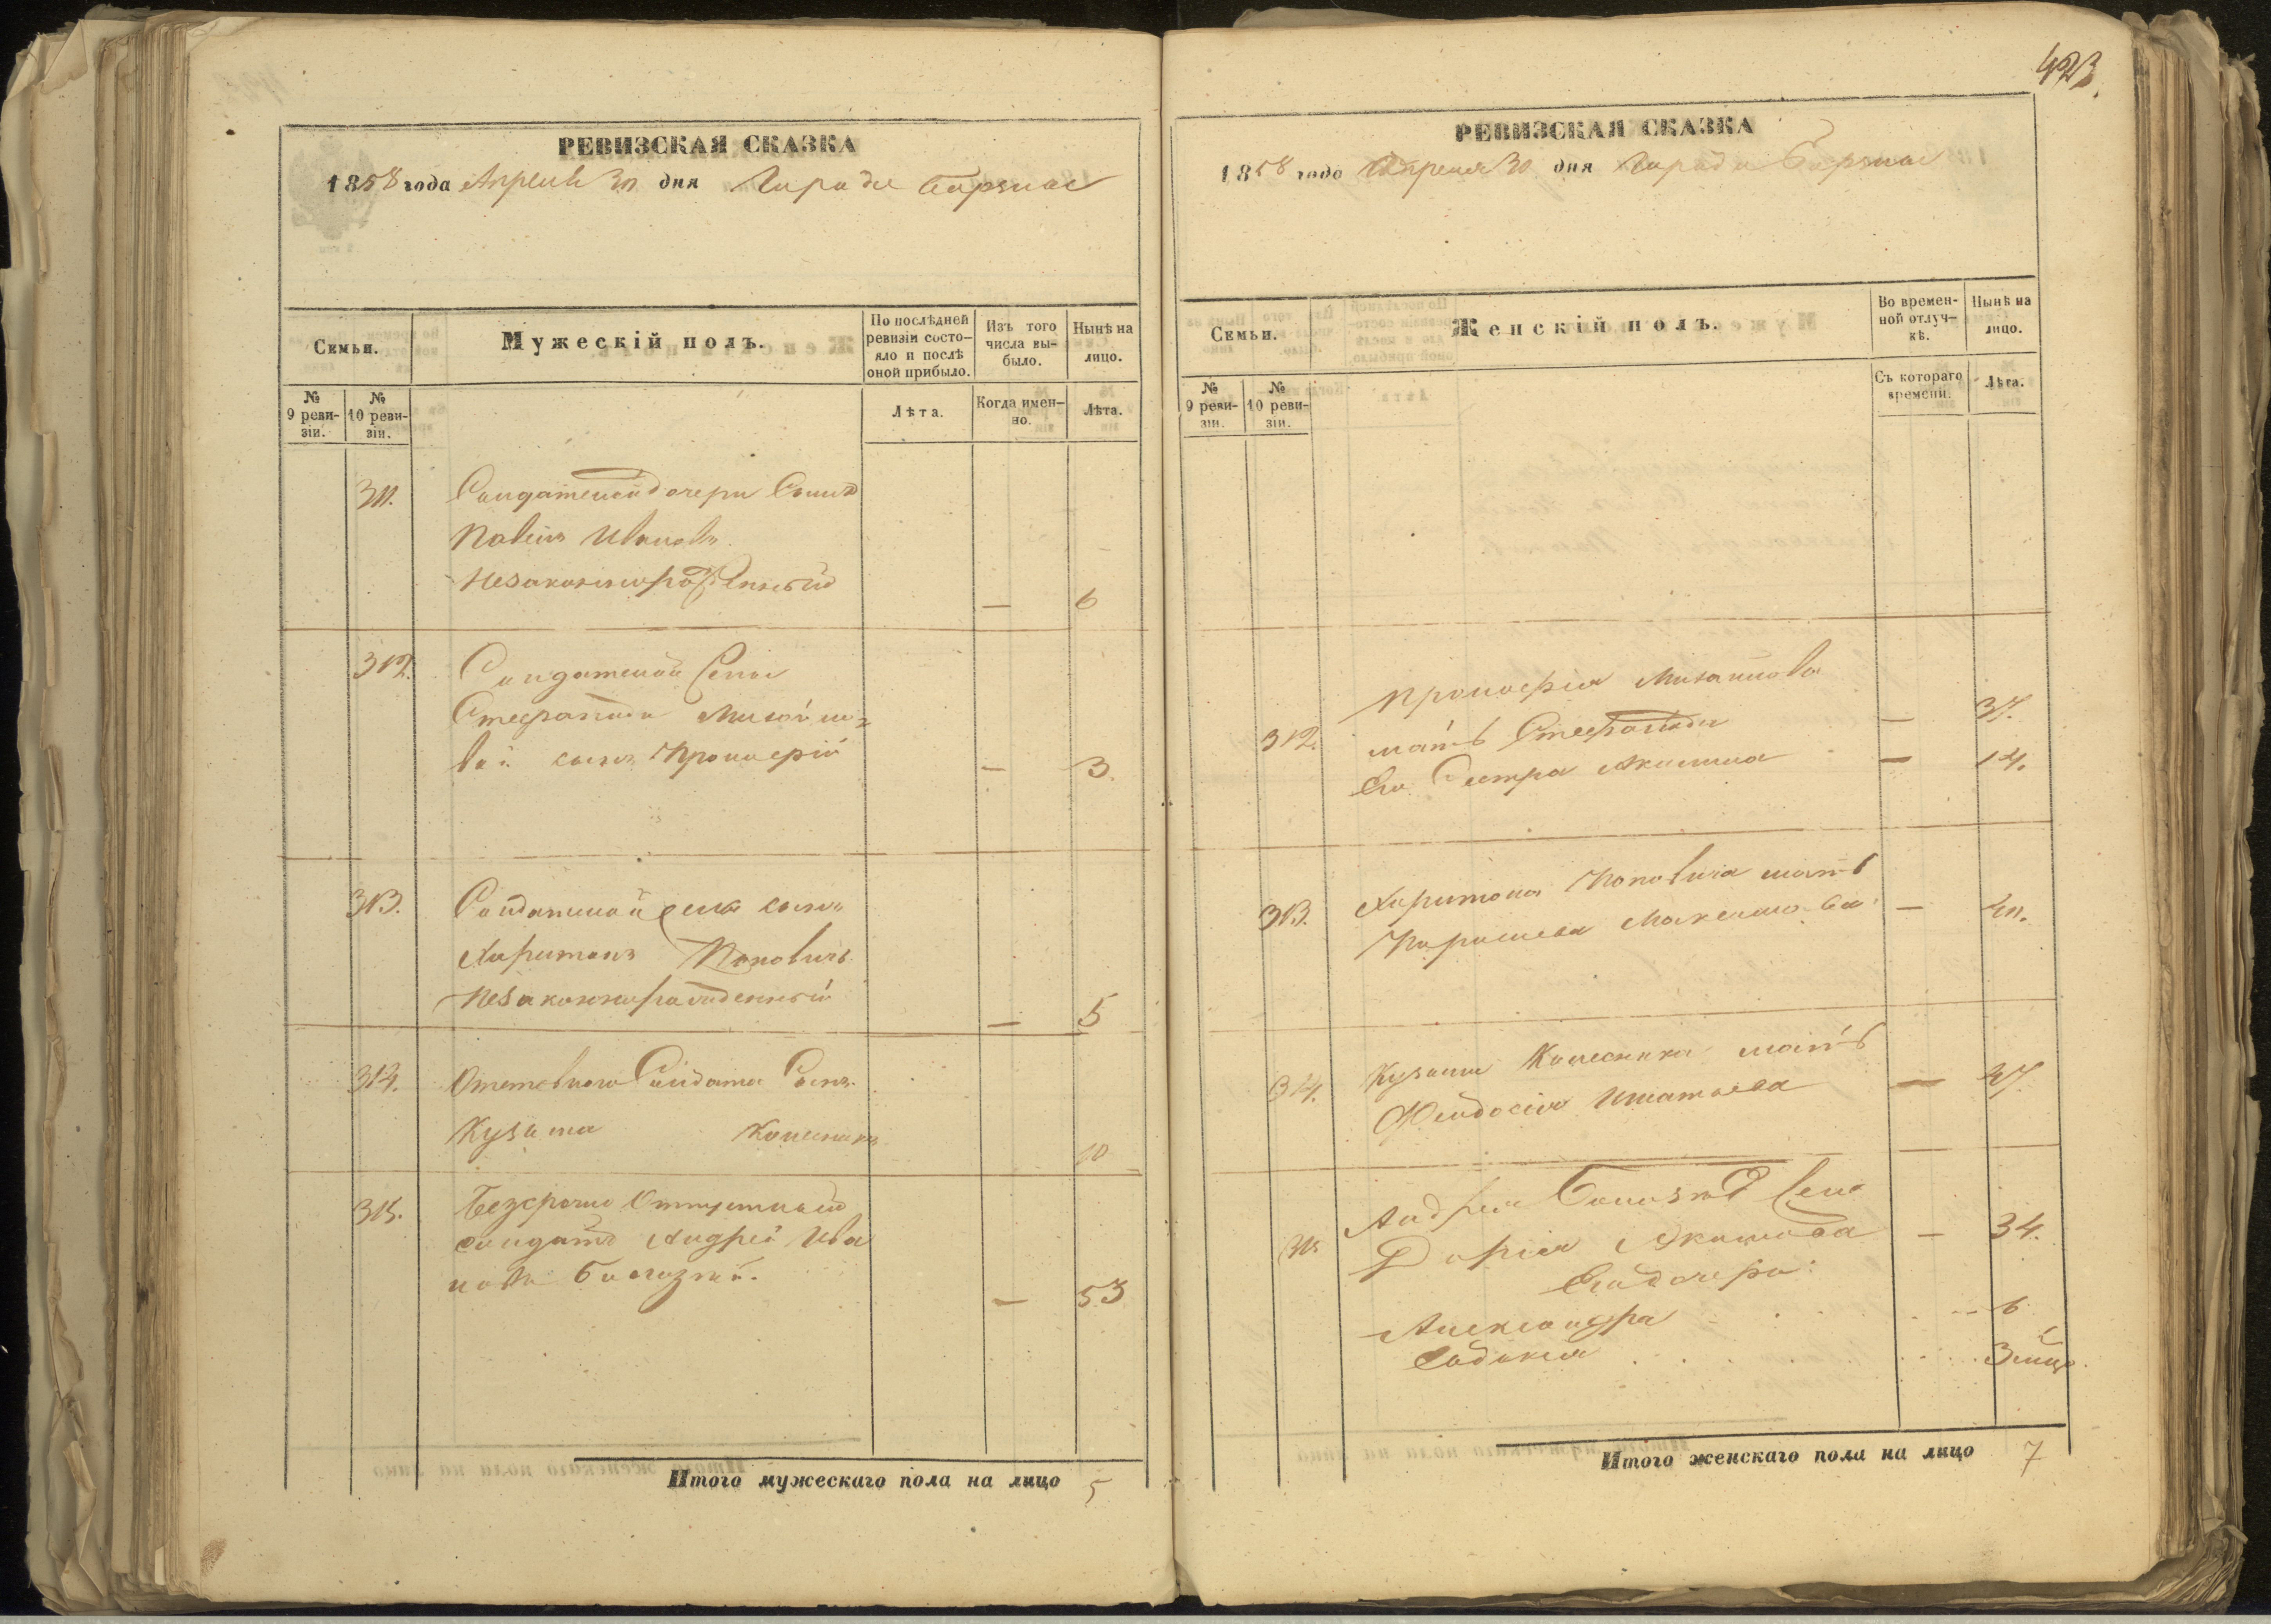 423
РЕВИЗСКАЯ СКАЗКА
1858 года Апреля 30 дня Города
Семьи.
Мужескій полъ.
По послѣдней ревизіи состо-
яло и послѣ
оной прибыло.
Изъ того
числа вы-
было.
Нынѣ на
лицо.
№
9 реви-
зіи.
№
10 реви-
зіи.
Лѣта.
Когда имен-
но.
Лѣта.
311. Солдатской дочери Сынъ
Павелъ Ивановъ
Незаконнорожденный — 6
312. Солдатской
Степаниды Михайло-
вой сынъ Прокофій — 3.
313. Солдатской сынъ
Харитонъ Поповичъ
Незаконнорожденный — 5
314. Отставного Солдата Сынъ
Кузьма Колесникъ 10
315. Безсрочно Отпускной
солдатъ Андрей Ива
новъ — 53
Итого мужескаго пола на лицо 5
РЕВИЗСКАЯ СКАЗКА
1858 года Апреля 30 дня Города
Семьи.
Женскій полъ.
Во времен-
ной отлуч-
кѣ.
Нынѣ на
лицо.
№
9 реви-
зіи.
№
10 реви-
зіи.
Съ котораго
времени.
Лѣта.
Прокофія Михайлова
312. мать Степанида — 37.
Его Сестра Акилина — 14.
313. Харитона Поповича мать
Максимова — 40.
314. Кузьмы Колесника мать
Феодосія Игнатьева — 47
Андрея
315 Дарія Якимова — 34.
Его дочери:
Александра 6
Евдокія 3 мѣся.
Итого женскаго пола на лицо 7